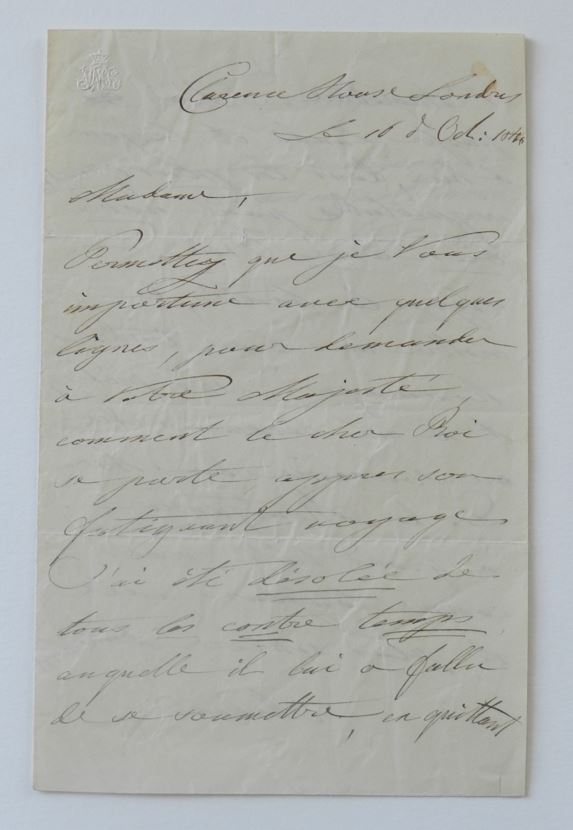 Clarence House Londres
Le 16 d' Oct: 184
Madame,
Permettez que je Vous
importune avec quelques
lignes, pour demander
à Votre Majesté,
comment le cher Roi
se porte, appres son
fatiguant voyage
J'ai été désolée de
tous les contre temps
auquelle il lui a fallu
de se soumettre, en quittant